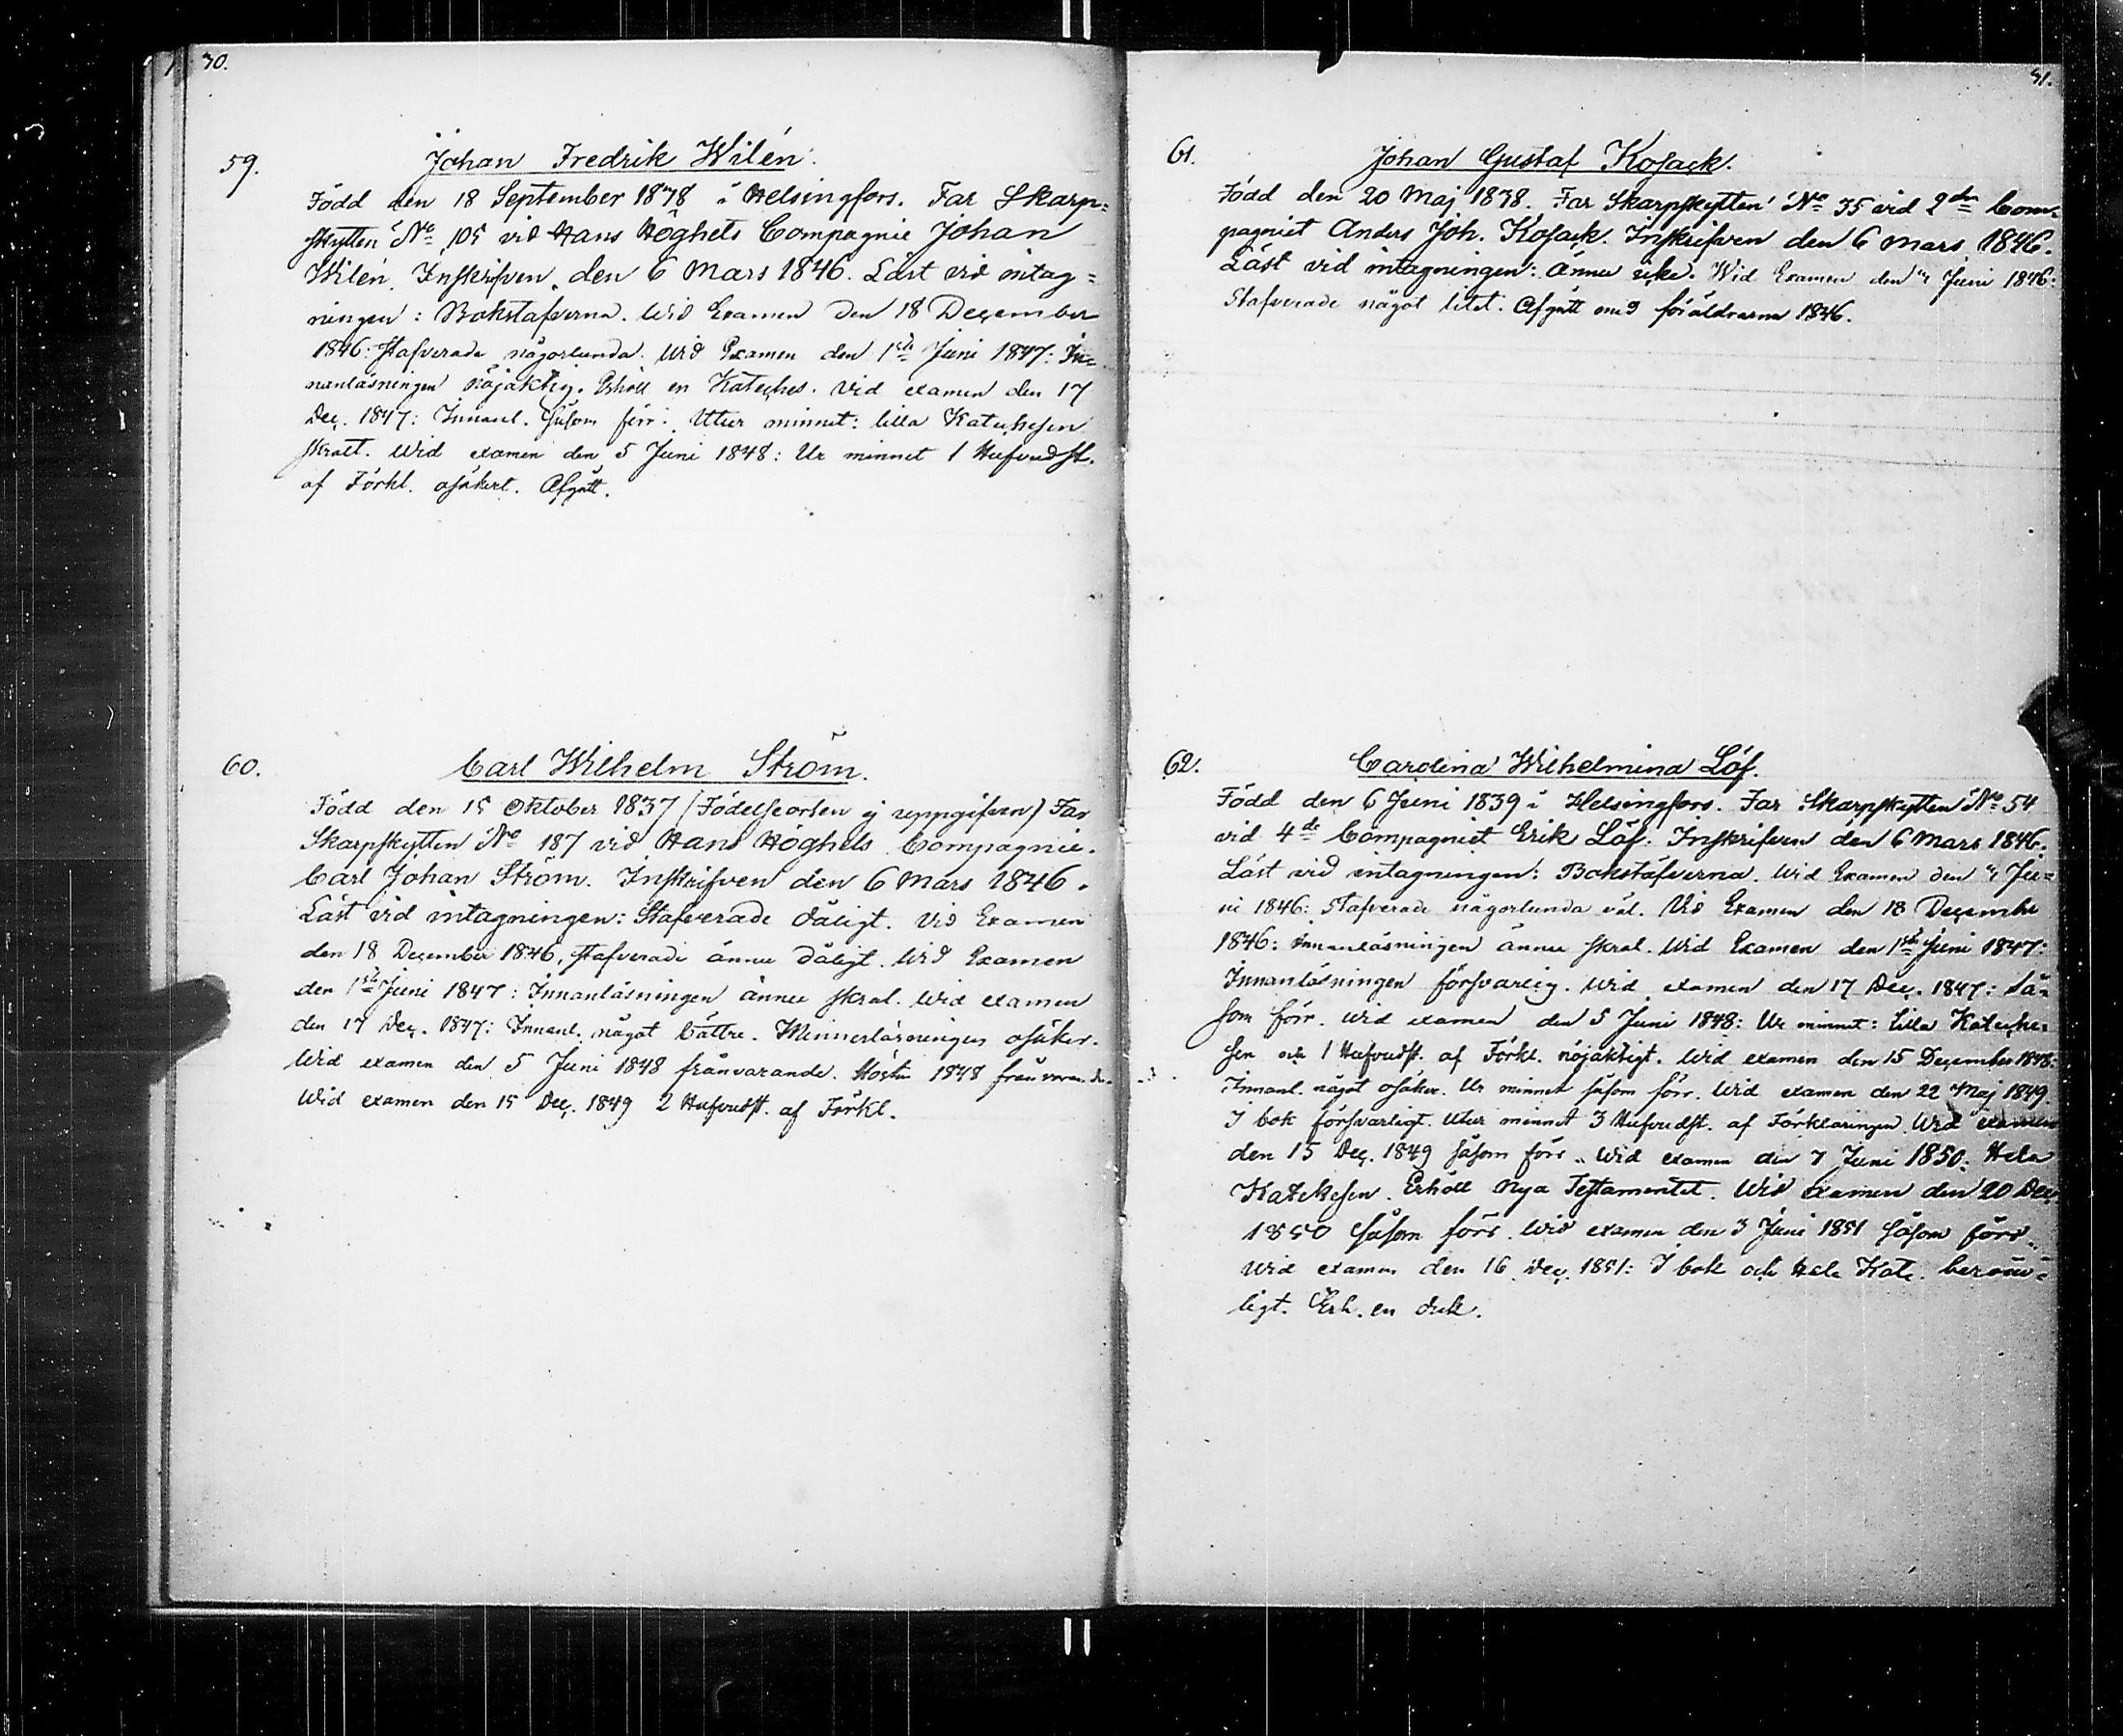 30.
59.
Johan Fredrik Wilén.
Född den 18 September 1838 i Helsingfors. Far Skarp-
skytten No 105 vid Hans Höghets Compagnie Johan
Wilén. Inskrifven den 6 Mars 1846. Läst vid intag-
ningen: Bokstafverna. Wid Examen den 18 December
1846: stafverade någorlunda. Wid Examen den 1sta Juni 1847: In-
nanläsningen nöjaktig. Erhöll en Kateches. Vid examen den 17
Dec. 1847: Innanl. såsom förr. Utur minnet: lilla Katechesen
skralt. Wid examen den 5 Juni 1848: Ur minnet 1 Hufvudst.
af Förkl. osäkert. Afgått.
60.
Carl Wilhelm Ström.
Född den 15 Oktober 1837 (Födelseorten ej uppgifven) Far
Skarpskytten No 187 vid Hans Höghets Compagnie.
Carl Johan Ström. Inskrifven den 6 Mars 1846.
Läst vid intagningen: Stafverade dåligt. Vid Examen
den 18 December 1846, stafverade ännu dåligt. Wid Examen
den 1sta Juni 1847: Innanläsningen ännu skral. Wid examen
den 17 Dec. 1847: Innanl. något bättre. Minnesläsningen osäker.
Wid examen den 5 Juni 1848 frånvarande. Hösten 1848 frånvarande.
Wid examen den 15 Dec. 1849 2 Hufvudst. af Förkl.
31.
61.
Johan Gustaf Kosack.
Född den 20 Maj 1838. Far Skarpskytten No 35 vid 2dra Com-
pagniet Anders Joh. Kosack. Inskrifven den 6 Mars 1846.
Läst vid intagningen: ännu icke. Wid Examen den 4 Juni 1846:
Stafverade något litet. Afgått med föräldrarna 1846.
62.
Carolina Wilhelmina Löf.
Född den 6 Juni 1839 i Helsingfors. Far Skarpskytten No 54
vid 4de Compagniet Erik Löf. Inskrifven den 6 Mars 1846.
Läst vid intagningen: Bokstäfverna. Wid Examen den 4 Ju-
ni 1846: Stafverade någorlunda väl. Vid Examen den 18 December
1846: Innanläsningen ännu skral. Wid Examen den 1sta Juni 1847:
Innanläsningen försvarlig. Wid examen den 17 Dec. 1847: Så-
som förr. Wid examen den 5 Juni 1848: Ur minnet: lilla Kateche-
sen och 1 Hufvudst. af Förkl. nöjaktigt. Wid examen den 15 December 1848:
Innanl. något osäker. Ur minnet såsom förr. Wid examen den 22 Maj 1849.
I bok försvarligt. Utur minnet 3 Hufvudst. af Förklaringen. Wid examen
den 15 Dec. 1849 såsom förr. Wid examen den 7 Juni 1850: Hela
Katekesen. Erhöll Nya Testamentet. Wid Examen den 20 Dec.
1850 såsom förr. Wid examen den 3 Juni 1851 såsom förr.
Wid examen den 16 Dec. 1851: I bok och hela Kate. beröm-
ligt. Erh. en duk.